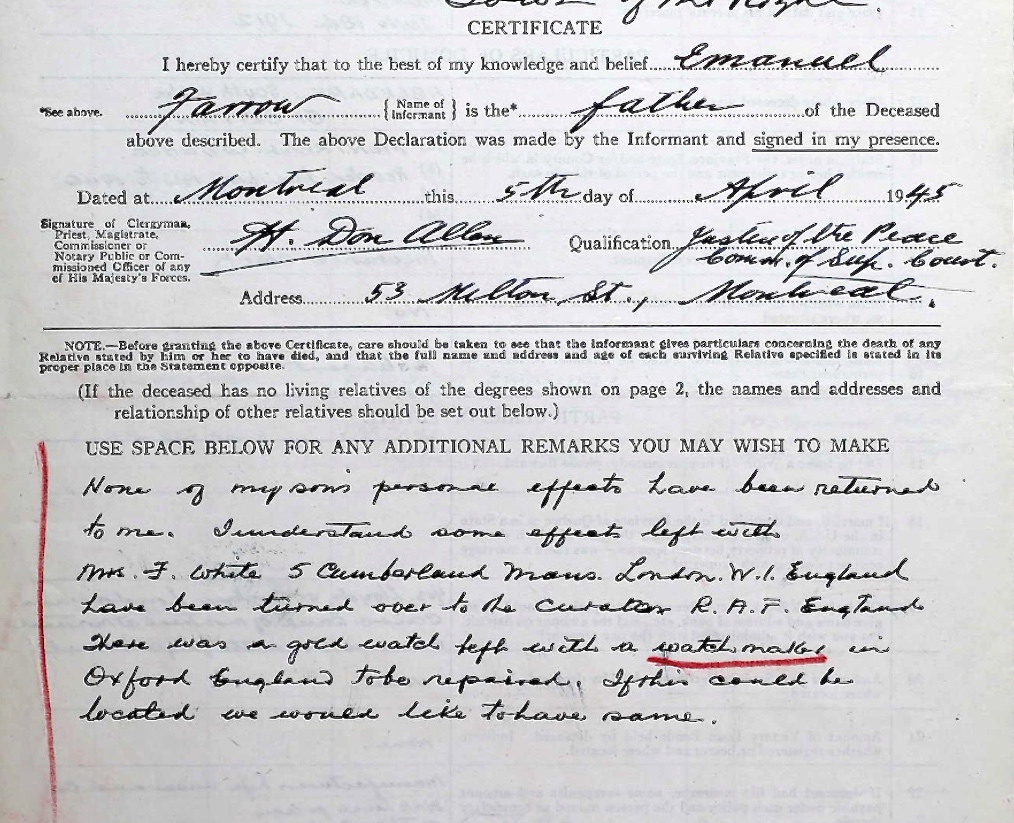 Town of Mt Royal.
CERTIFICATE
I hereby certify that to the best of my knowledge and belief Emanuel
*See above. Farrow {Name of Informant} is the* father of the Deceased
above described. The above Declaration was made by the Informant and signed in my presence.
Dated at Montreal this 5th day of April 1945
Signature of Clergyman,
Priest, Magistrate,
Commissioner or
Notary Public or Com-
missioned Officer of any
of His Majesty's Forces.
H. Don Allen
Qualification Justice of the Peace
Comm. of Sup. Court.
Address 53 Milton St., Montreal.
NOTE.—Before granting the above Certificate, care should be taken to see that the informant gives particulars concerning the death of any
Relative stated by him or her to have died, and that the full name and address and age of each surviving Relative specified is stated in its
proper place in the Statement opposite.
(If the deceased has no living relatives of the degrees shown on page 2, the names and addresses and
relationship of other relatives should be set out below.)
USE SPACE BELOW FOR ANY ADDITIONAL REMARKS YOU MAY WISH TO MAKE
None of my son's personal effects have been returned
to me. I understand some effects left with
Mrs. F. White 5 Cumberland Mans. London. W.1. England
have been turned over to the Curator R.A.F. England
There was a gold watch left with a watchmaker in
Oxford England to be repaired. If this could be
located we would like to have same.